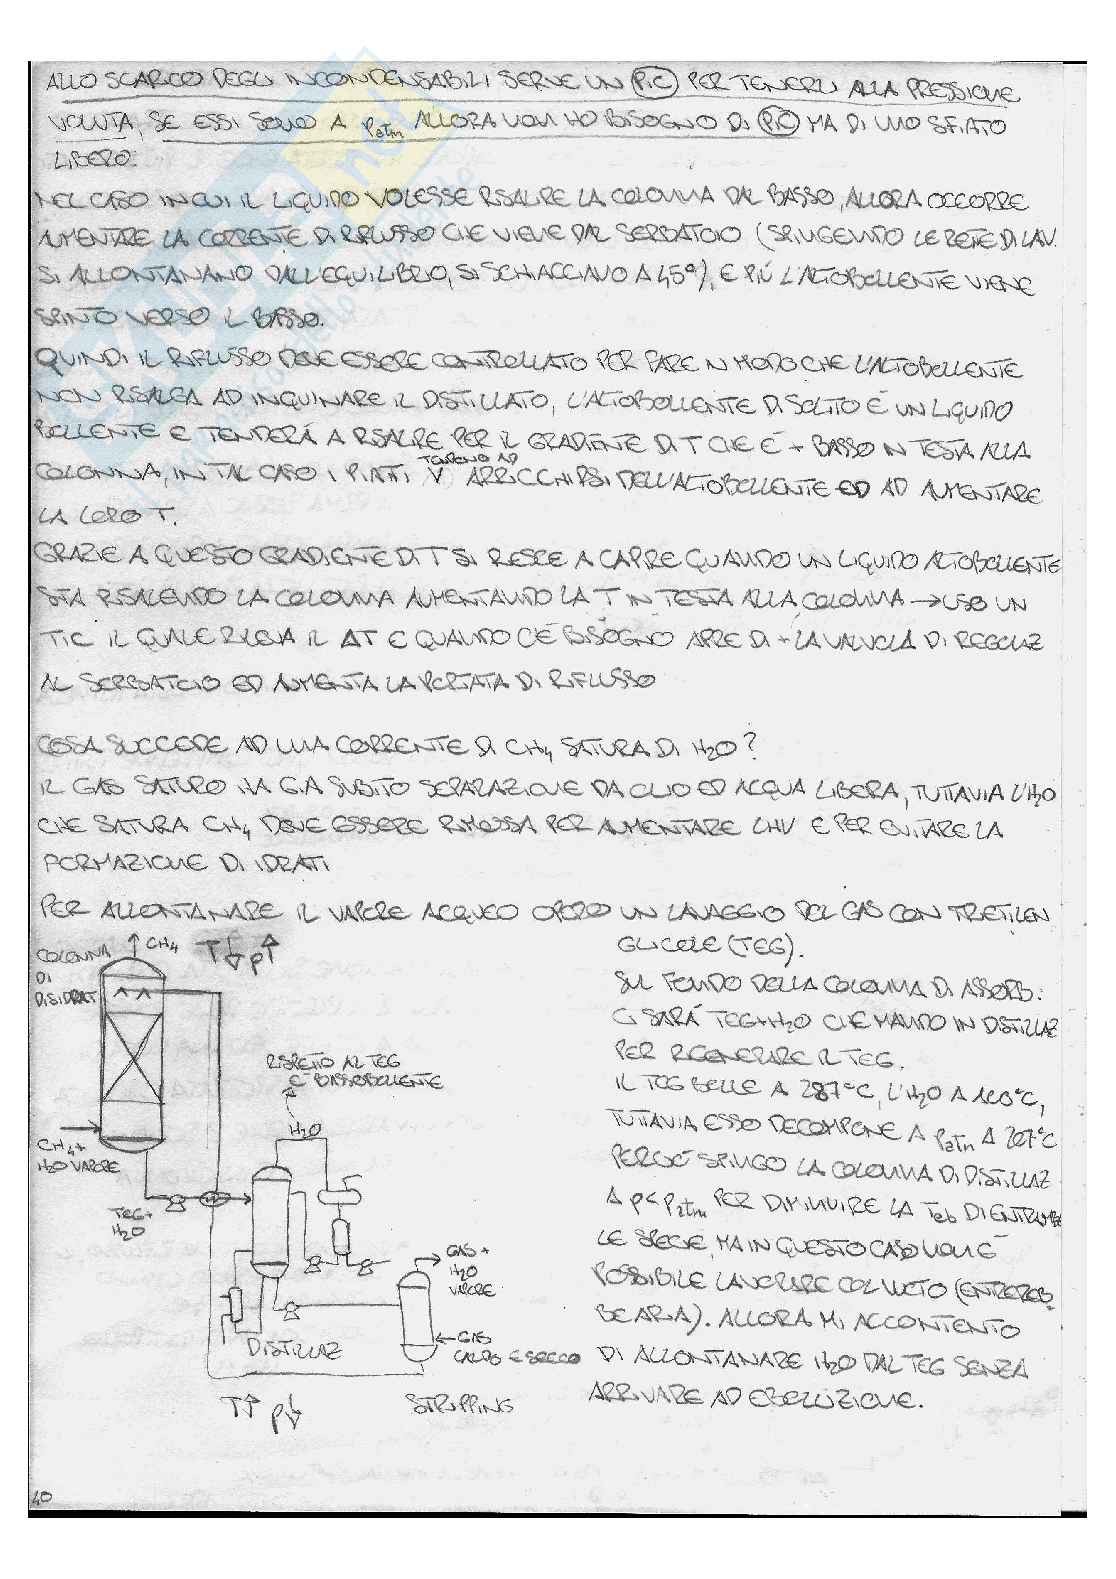 ALLO SCARICO DEGLI INCONDENSABILI SERVE UN PiC PER TENERLI ALLA PRESSIONE
VOLUTA, SE ESSI SONO A Patm ALLORA NON HO BISOGNO DI PiC MA DI UNO SFIATO
LIBERO.
NEL CASO IN CUI IL LIQUIDO VOLESSE RISALIRE LA COLONNA DAL BASSO, ALLORA OCCORRE
AUMENTARE LA CORRENTE DI RIFLUSSO CHE VIENE DAL SERBATOIO (SPINGENDO LE RETE DI LAV.
SI ALLONTANANO DALL'EQUILIBRIO, SI SCHIACCIANO A 45°), E PIÚ L'ALTOBOLLENTE VIENE
SPINTO VERSO IL BASSO.
QUINDI IL RIFLUSSO DEVE ESSERE CONTROLLATO PER FARE IN MODO CHE L'ALTOBOLLENTE
NON RISALGA AD INQUINARE IL DISTILLATO, L'ALTOBOLLENTE DI SOLITO É UN LIQUIDO
BOLLENTE E TENDERÁ A RISALIRE PER IL GRADIENTE DI T CHE É + BASSO IN TESTA ALLA
COLONNA, IN TAL CASO I PIATTI TENDONO AD ARRICCHIRSI DELL'ALTOBOLLENTE ED AD AUMENTARE
LA LORO T.
GRAZIE A QUESTO GRADIENTE DI T SI RIESCE A CAPIRE QUANDO UN LIQUIDO ALTOBOLLENTE
STA RISALENDO LA COLONNA AUMENTANDO LA T IN TESTA ALLA COLONNA → USO UN
TIC IL QUALE RILEVA IL ΔT E QUANDO C'É BISOGNO APRE DI + LA VALVOLA DI REGOLAZ
AL SERBATOIO ED AUMENTA LA PORTATA DI RIFLUSSO
COSA SUCCEDE AD UNA CORRENTE DI CH4 SATURA DI H2O?
IL GAS SATURO HA GIA SUBITO SEPARAZIONE DA OLIO ED ACQUA LIBERA, TUTTAVIA L'H2O
CHE SATURA CH4 DEVE ESSERE RIMOSSA PER AUMENTARE LHV E PER EVITARE LA
FORMAZIONE DI IDRATI
PER ALLONTANARE IL VAPORE ACQUEO OPERO UN LAVAGGIO DEL GAS CON TRIETILEN
GLICOLE (TEG).
SUL FONDO DELLA COLONNA DI ASSORB.
CI SARÁ TEG+H2O CHE MANDO IN DISTILLAZ
PER RIGENERARE IL TEG.
IL TEG BOLLE A 287°C, L'H2O A 100°C,
TUTTAVIA ESSO DECOMPONE A Patm A 207°C
PERCIÓ SPINGO LA COLONNA DI DISTILLAZ
A P<Patm PER DIMINUIRE LA Teb DI ENTRAMBE
LE SPECIE, MA IN QUESTO CASO NON É
POSSIBILE LAVORARE COL VUOTO (ENTREREB-
BE ARIA). ALLORA MI ACCONTENTO
DI ALLONTANARE H2O DAL TEG SENZA
ARRIVARE AD EBOLLIZIONE.
COLONNA
DI
DISIDRAT
CH4
T↓ P↑
CH4+
H2O VAPORE
TEG+
H2O
RISPETTO AL TEG
É BASSOBOLLENTE
H2O
DISTILLAZ
T↑ P↓
GAS +
H2O
VAPORE
GAS
CALDO E SECCO
STRIPPING
40